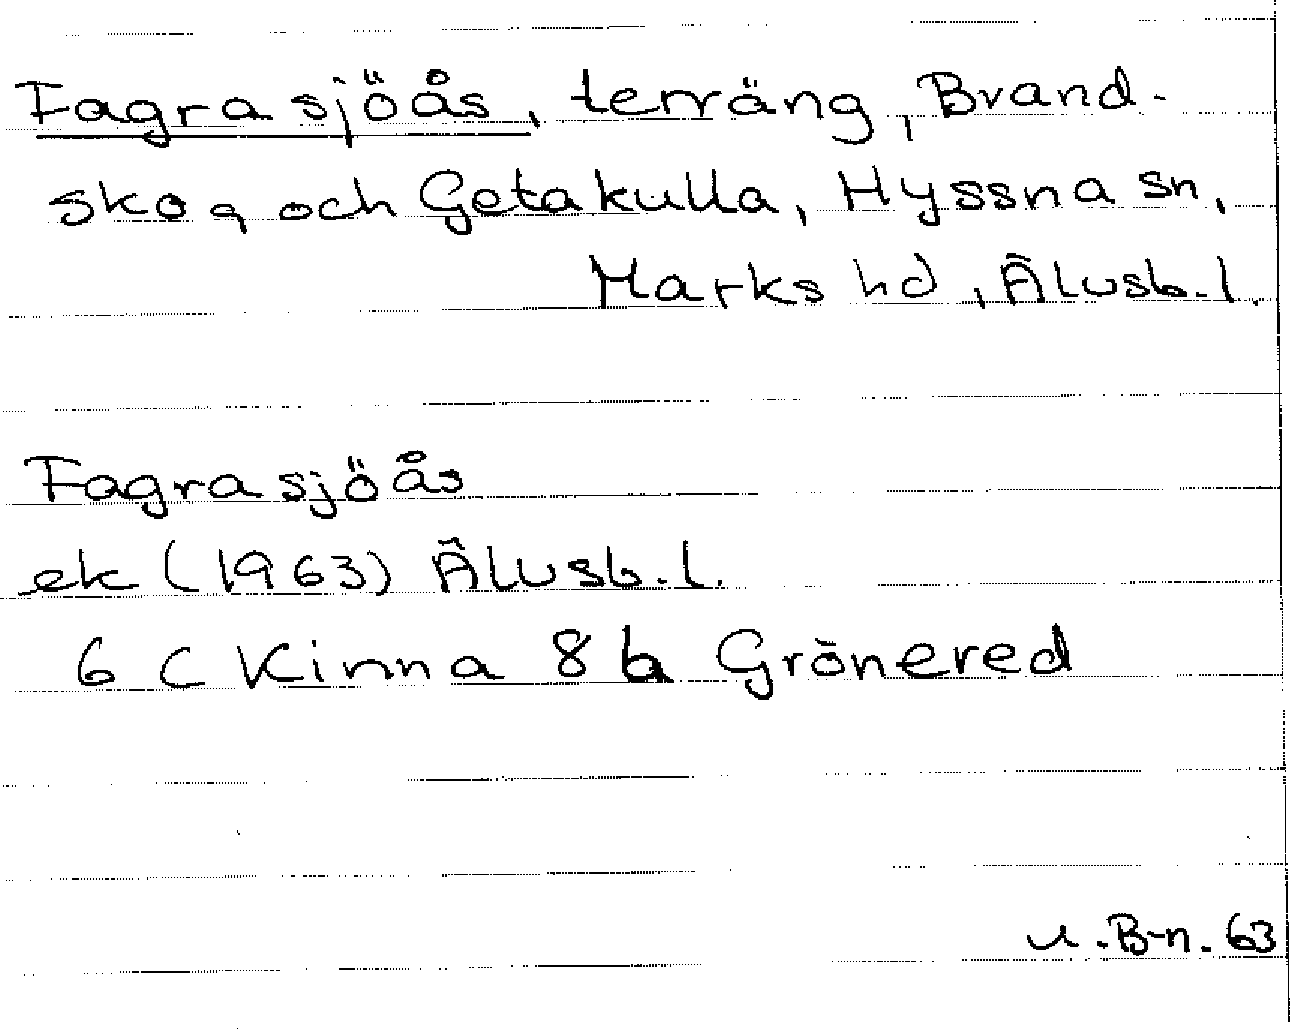 Fagrasjöås, terräng, Brand-
skog och Getakulla, Hyssna sn,
Marks hd, Älvsb. l.
Fagrasjöås
ek (1963) Älvsb. l.
6 C Kinna 8 b Grönered
U. B-n. 63